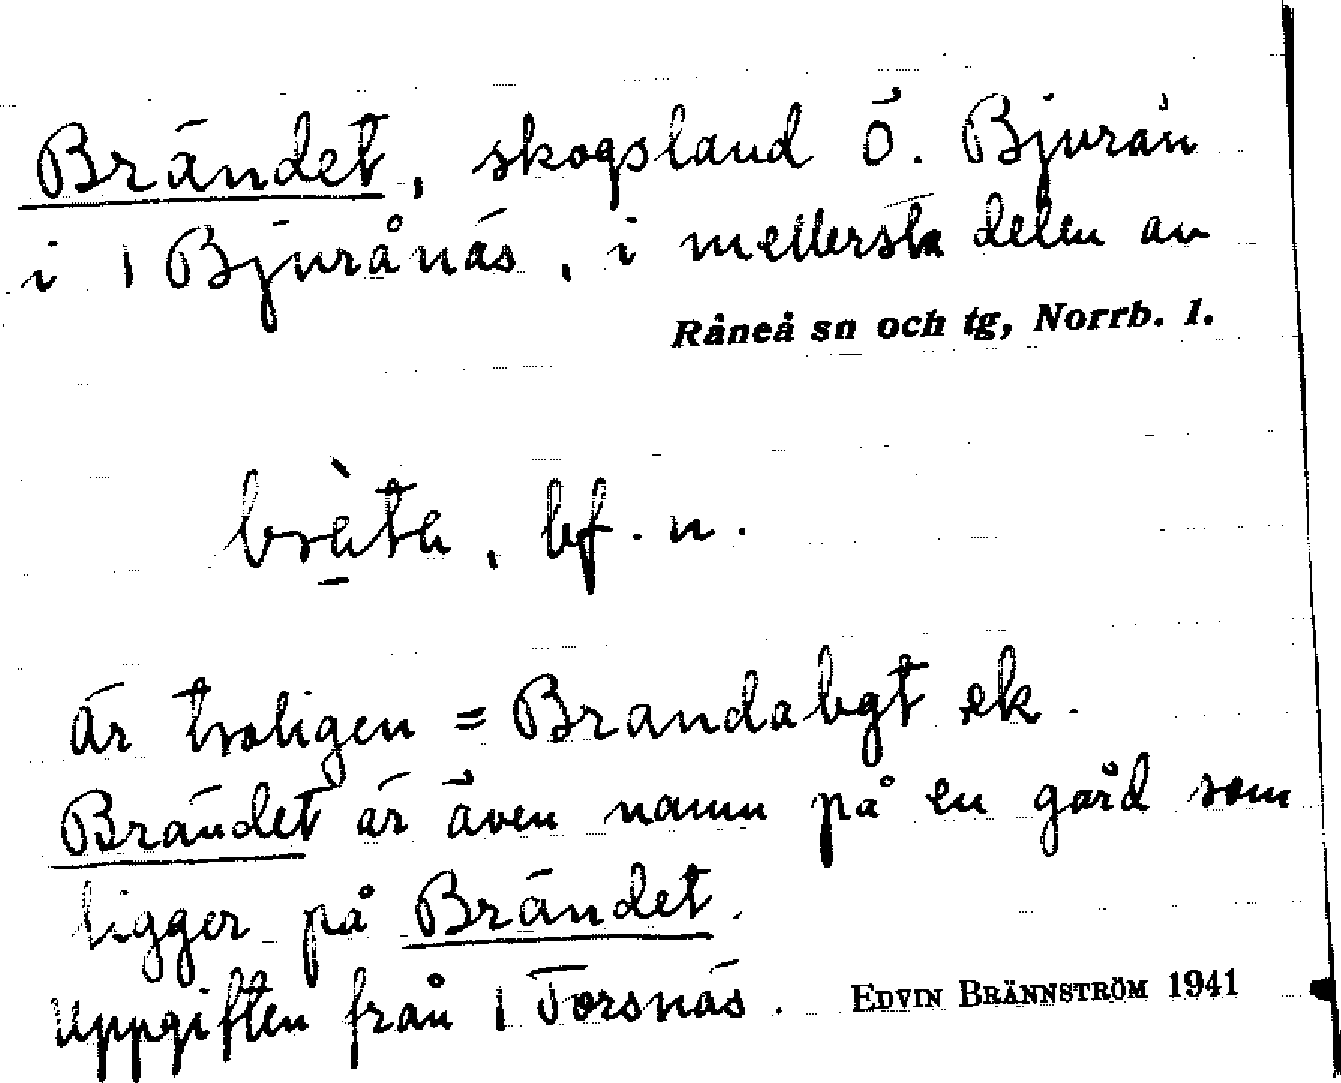 Brändet, skogsland ö. Bjurån
i 1 Bjurånäs, i mellersta delen av
Råneå sn och tg, Norrb. l.
bràta, bf. n.
är troligen = Brandabgt ek.
Brändet är även namn på en gård som
ligger på Brändet.
Uppgiften från 1 Forsnäs. EDVIN BRÄNNSTRÖM 1941